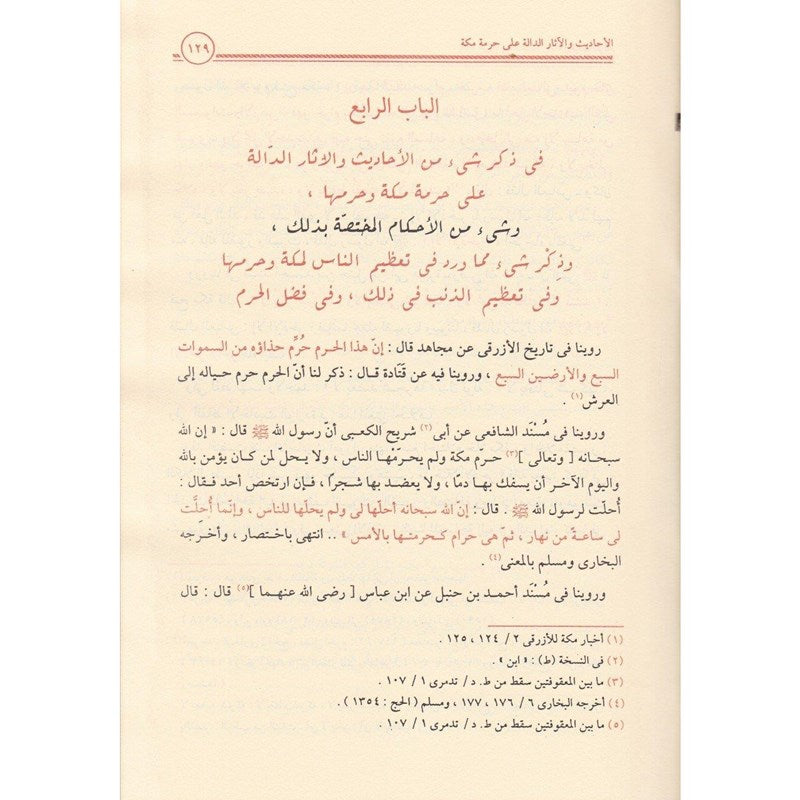 الأحاديث والآثار الدالة على حرمة مكة
١٢٩
الباب الرابع
فى ذكر شىء من الأحاديث والآثار الدّالة
على حرمة مكة وحرمها ،
وشىء من الأحكام المختصّة بذلك ،
وذِكْر شىء مما ورد فى تعظيم الناس لمكة وحرمها
وفى تعظيم الذنب فى ذلك ، وفى فضل الحرم
روينا فى تاريخ الأزرقى عن مجاهد قال : إنّ هذا الحرم حُرِّم حذاؤه من السموات
السبع والأرضين السبع ، وروينا فيه عن قَتَادة قال : ذكر لنا أنّ الحرم حرم حياله إلى
العرش(١) .
وروينا فى مُسْنَد الشافعى عن أبى(٢) شريح الكعبى أنّ رسول الله ﷺ قال : « إن الله
سبحانه [ وتعالى ](٣) حرّم مكة ولم يحرّمْها الناس ، ولا يحلّ لمن كان يؤمن بالله
واليوم الآخر أن يسفك بها دمًا ، ولا يعضد بها شجرًا ، فإن ارتخص أحد فقال :
أُحلّت لرسول الله ﷺ . قال : إنّ الله سبحانه أحلّها لى ولم يحلّها للناس ، وإنّما أُحِلَّت
لى ساعةً من نهار ، ثمّ هى حرام كحرمتها بالأمس » .. انتهى باختصار ، وأخرجه
البخارى ومسلم بالمعنى(٤) .
وروينا فى مُسْنَد أحمد بن حنبل عن ابن عباس [ رضى الله عنهما ](٥) قال : قال
(١) أخبار مكة للأزرقى ٢ / ١٢٤ ، ١٢٥ .
(٢) فى النسخة (ط) : « ابن » .
(٣) ما بين المعقوفتين سقط من ط. د / تدمرى ١ / ١٠٧ .
(٤) أخرجه البخارى ٦ / ١٧٦ ، ١٧٧ ، ومسلم ( الحج : ١٣٥٤ ) .
(٥) ما بين المعقوفتين سقط من ط. د / تدمرى ١ / ١٠٧ .